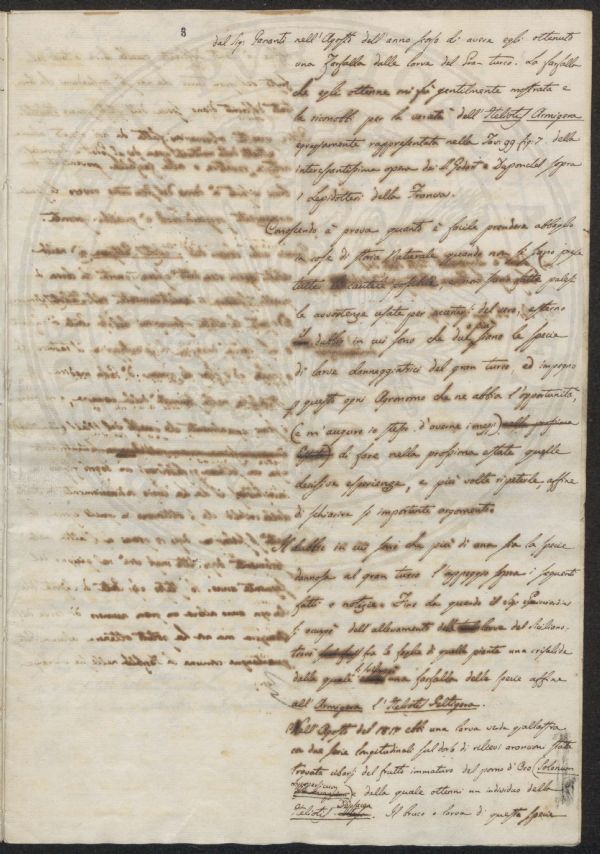 8
dal Sig. nell'Agosto dell'anno scorso di avere egli ottenuto
una farfalla dalle larve del Gran turco. La farfalla
che egli ottenne mi fu gentilmente mostrata e
la riconobbi per la varietà dell'Heliotis Armigera
espressamente rappresentata nella Tav. 99 fig. 7 della
interessantissima opera dei Sig. Godart e Duponchel sopra
i Lepidotteri della Francia.
Conoscendo a prova quanto è facile prendere abbaglio
in cose di Storia Naturale quando non si sono prese
tutte le cautele possibili
le avvertenze usate per del vero, esterno
il dubbio in cui sono che due o più siano le specie
di larve danneggiatrici del gran turco, ed impegno
p questo ogni Agronomo che ne abbia l'opportunità,
(e m'auguro io stesso d'averne i mezzi) nella prossima
Estate di fare nella prossima estate quelle
decisive esperienze, e più volte ripeterle, affine
di schiarire sì importante argomento.
Il dubbio in cui sono che più di una sia la specie
dannosa al gran turco l'appoggio sopra i seguenti
fatti e notizie. Fino da quando il Sig.
si occupò dell'allevamento delle larve del Siciliano
trovò fra le foglie di quella pianta una crisalide
dalla quale una farfalla della specie affine
all'Armigera l'Heliotis Peltigera.
Nell'Agosto del 1817 ebbi una larva verde giallastra
con due serie longitudinali sul dorso di rilievi aranciati stata
trovata cibarsi del frutto immaturo del pomo d'Oro (Solanum
Lycopersicum) e dalla quale ottenni un individuo della
Heliotis. Il bruco o larva di questa specie